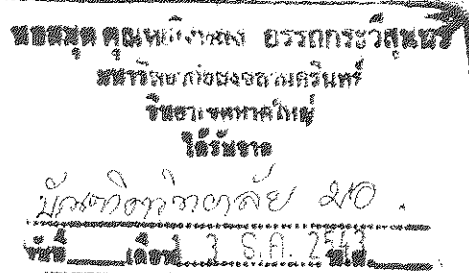 หอสมุด คุณหญิงหลง อรรถกระวีสุนทร
มหาวิทยาลัยสงขลานครินทร์
วิทยาเขตหาดใหญ่
ได้รับจาก
บัณฑิตวิทยาลัย มอ.
วันที่ เดือน 3 ธ.ค. 2543